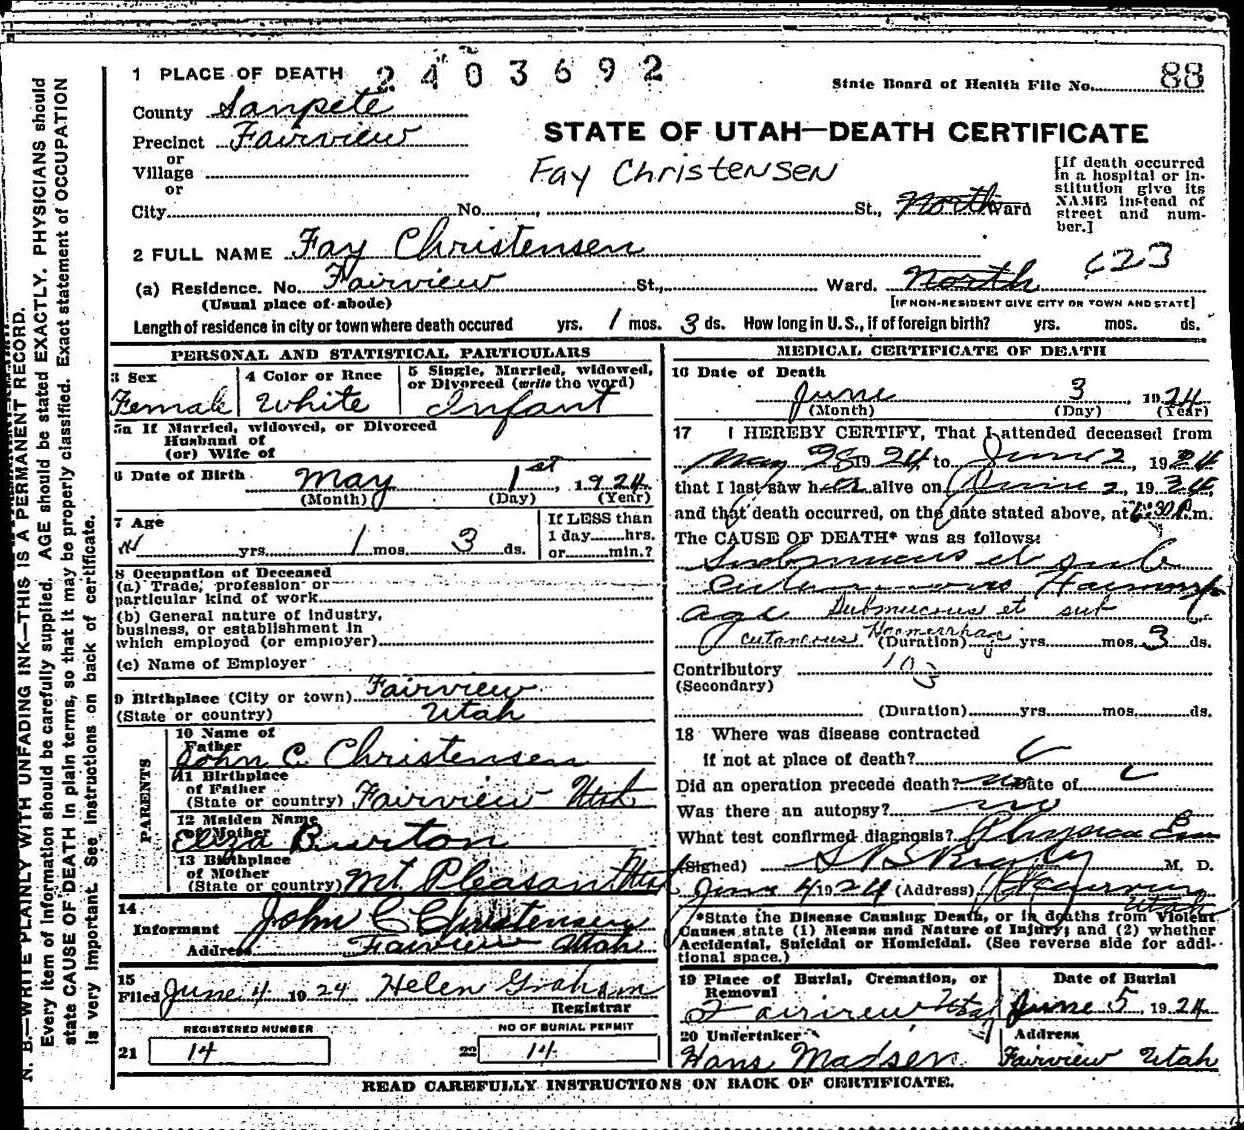 1 PLACE OF DEATH 2403692
State Board of Health File No. 88
County Sanpete
Precinct Fairview
or
Village
or
City No. , St., North Ward
STATE OF UTAH—DEATH CERTIFICATE
Fay Christensen
[If death occurred
in a hospital or in-
stitution give its
NAME instead of
street and num-
ber.]
2 FULL NAME Fay Christensen
623
(a) Residence. No. Fairview St., Ward. North
(Usual place of abode) [IF NON-RESIDENT GIVE CITY OR TOWN AND STATE]
Length of residence in city or town where death occured yrs. 1 mos. 3 ds. How long in U.S., if of foreign birth? yrs. mos. ds.
PERSONAL AND STATISTICAL PARTICULARS
3 Sex
Female
4 Color or Race
White
5 Single, Married, widowed,
or Divorced (write the word)
Infant
5a If Married, widowed, or Divorced
Husband of
(or) Wife of
6 Date of Birth May 1st, 1924
(Month) (Day) (Year)
7 Age
yrs. 1 mos. 3 ds.
If LESS than
1 day hrs.
or min.?
8 Occupation of Deceased
(a) Trade, profession or
particular kind of work
(b) General nature of industry,
business, or establishment in
which employed (or employer)
(c) Name of Employer
9 Birthplace (City or town) Fairview
(State or country) Utah
PARENTS
10 Name of
Father
John C. Christensen
11 Birthplace
of Father
(State or country) Fairview Utah
12 Maiden Name
of Mother
Eliza Burton
13 Birthplace
of Mother
(State or country) Mt. Pleasant Utah
14
Informant John C Christensen
Address Fairview Utah
15
Filed June 4 1924 Helen Graham
Registrar
REGISTERED NUMBER
21 14
NO OF BURIAL PERMIT
22 14
MEDICAL CERTIFICATE OF DEATH
16 Date of Death
June 3, 1924
(Month) (Day) (Year)
17 I HEREBY CERTIFY, That I attended deceased from
May 28 1924 to June 2, 1924
that I last saw her alive on June 2, 1924,
and that death occurred, on the date stated above, at 6:30 P.m.
The CAUSE OF DEATH* was as follows:
Submucous et sub
cutaneous Haemorrh
age Submucous et sub
cutaneous Haemorrhage (Duration) yrs. mos. 3 ds.
Contributory 103
(Secondary)
(Duration) yrs. mos. ds.
18 Where was disease contracted
if not at place of death?
Did an operation precede death? no Date of
Was there an autopsy? no
What test confirmed diagnosis? Physical
(Signed) M. D.
June 4 1924 (Address) Fairview
Utah
*State the Disease Causing Death, or in deaths from Violent
Causes state (1) Means and Nature of Injury; and (2) whether
Accidental, Suicidal or Homicidal. (See reverse side for addi-
tional space.)
19 Place of Burial, Cremation, or
Removal
Fairview Utah
Date of Burial
June 5 1924
20 Undertaker
Hans Madsen
Address
Fairview Utah
READ CAREFULLY INSTRUCTIONS ON BACK OF CERTIFICATE.
N. B.—WRITE PLAINLY WITH UNFADING INK—THIS IS A PERMANENT RECORD.
Every item of information should be carefully supplied. AGE should be stated EXACTLY. PHYSICIANS should
state CAUSE OF DEATH in plain terms, so that it may be properly classified. Exact statement of OCCUPATION
is very important. See instructions on back of certificate.